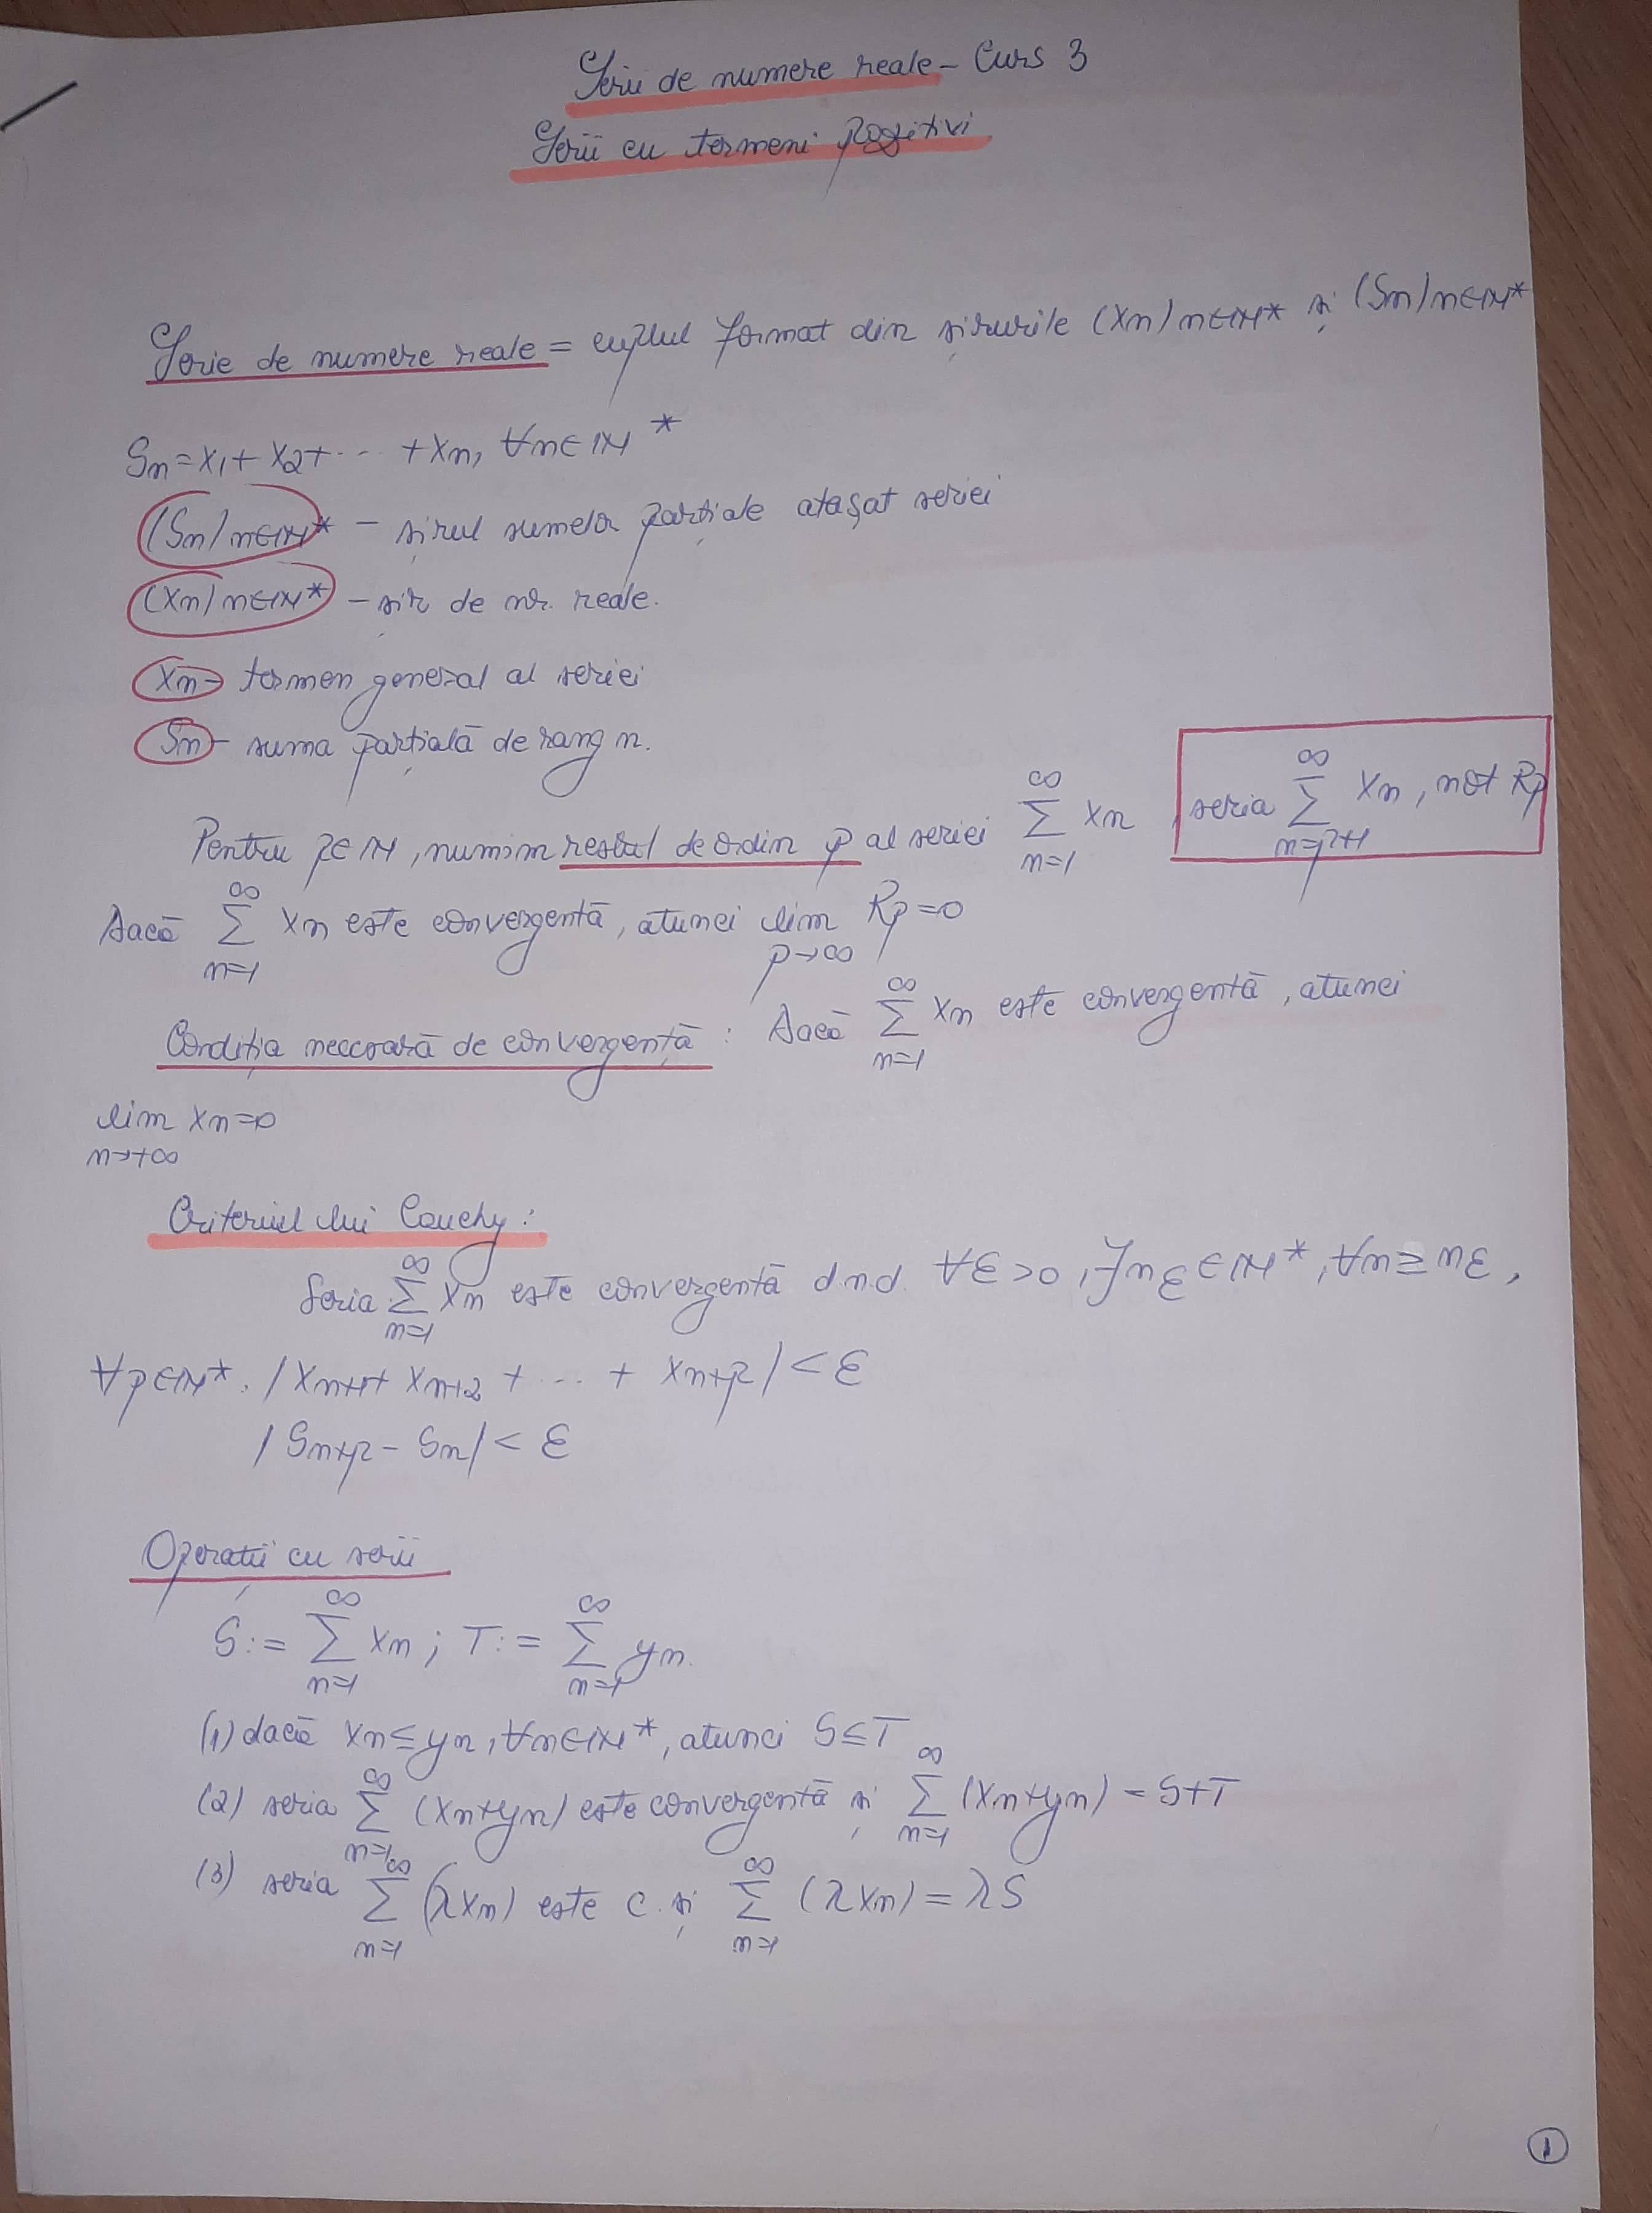 Serii de numere reale – Curs 3
Serii cu termeni pozitivi
Serie de numere reale = cuplul format din șirurile (xn)n∈ℕ* și (Sn)n∈ℕ*
Sn = x1 + x2 + ... + xn, ∀n∈ℕ*
(Sn)n∈ℕ* – șirul sumelor parțiale atașat seriei
(xn)n∈ℕ* – șir de nr. reale.
xn – termen general al seriei
Sn – suma parțială de rang n.
Pentru p∈ℕ, numim restul de ordin p al seriei ∑_{n=1}^{∞} xn seria ∑_{n=p+1}^{∞} xn, not Rp
Dacă ∑_{n=1}^{∞} xn este convergentă, atunci lim_{p→∞} Rp = 0
Condiția necesară de convergență : Dacă ∑_{n=1}^{∞} xn este convergentă, atunci
lim_{n→+∞} xn = 0
Criteriul lui Cauchy :
Seria ∑_{n=1}^{∞} xn este convergentă d.n.d. ∀ε>0, ∃nε∈ℕ*, ∀n≥nε,
∀p∈ℕ*. |xn+1 + xn+2 + ... + xn+p| < ε
|Sn+p – Sn| < ε
Operații cu serii
S := ∑_{n=1}^{∞} xn ; T := ∑_{n=1}^{∞} yn.
(1) dacă xn ≤ yn, ∀n∈ℕ*, atunci S ≤ T
(2) seria ∑_{n=1}^{∞} (xn+yn) este convergentă și ∑_{n=1}^{∞} (xn+yn) = S+T
(3) seria ∑_{n=1}^{∞} (λxn) este c. și ∑_{n=1}^{∞} (λxn) = λS
1